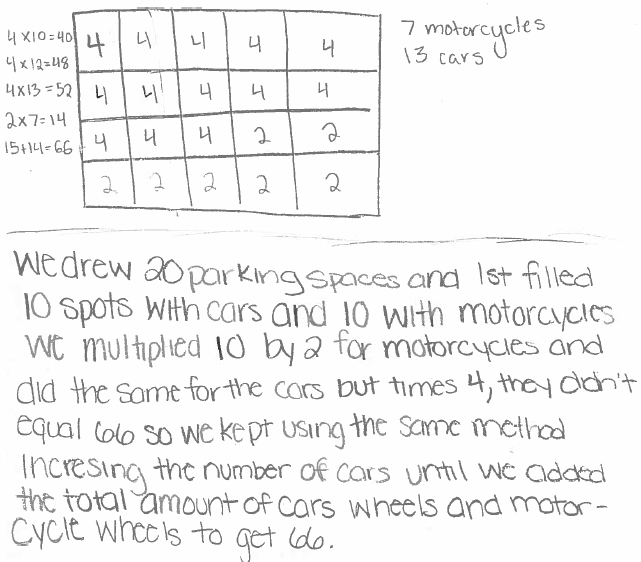 4 x10=40
4 x12=48
4x13=52
2x7=14
15+14=66
4 4 4 4 4
4 4 4 4 4
4 4 4 2 2
2 2 2 2 2
7 motorcycles
13 cars
We drew 20 parking spaces and 1st filled
10 spots with cars and 10 with motorcycles
We multiplied 10 by 2 for motorcycles and
did the same for the cars but times 4, they didn't
equal 66 so we kept using the same method
Incresing the number of cars until we added
the total amount of cars wheels and motor-
cycle wheels to get 66.